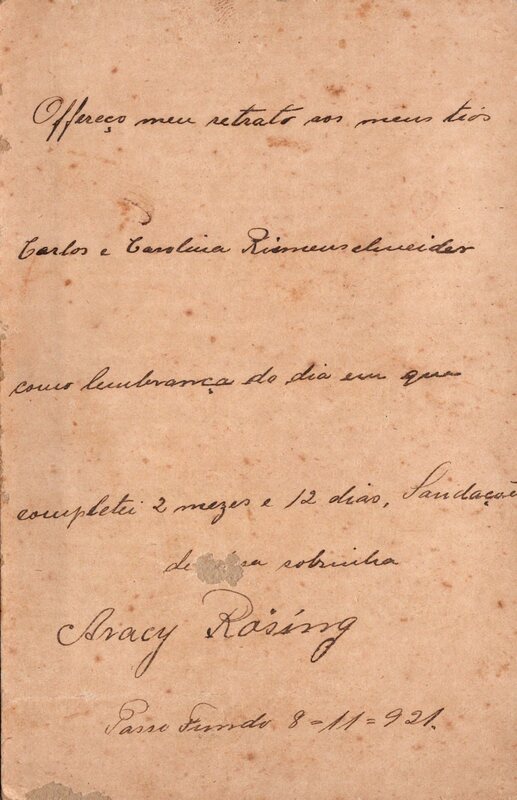 Offereço meu retrato aos meus tios
Carlos e Carolina Riemenschneider
como lembrança do dia em que
completei 2 mezes e 12 dias, Saudações
de sobrinha
Aracy Rösing
Passo Fundo 8=11=921.